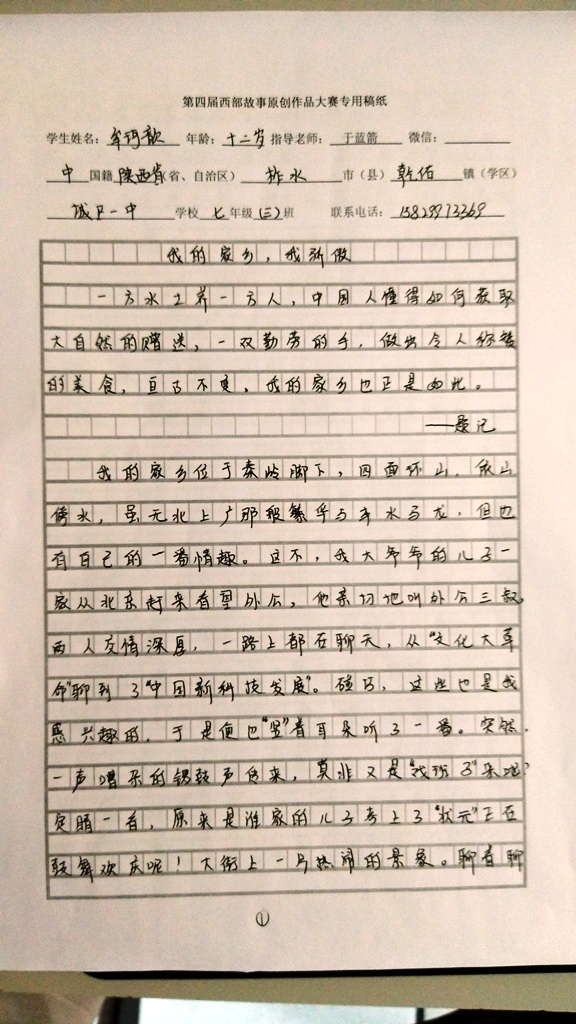 第四届西部故事原创作品大赛专用稿纸
学生姓名：牟钙歆 年龄：十二岁 指导老师：于蓝箭 微信：
中 国籍 陕西省（省、自治区） 柞水 市（县） 乾佑 镇（学区）
城区一中 学校 七年级（三）班 联系电话：15829973369
我的家乡，我骄傲
一方水土养一方人，中国人懂得如何获取
大自然的赠送，一双勤劳的手，做出令人称赞
的美食，亘古不变，我的家乡也正是如此。
——题记
我的家乡位于秦岭脚下，四面环山，依山
傍水，虽无北上广那般繁华与车水马龙，但也
有自己的一番情趣。这不，我大爷爷的儿子一
家从北京赶来看望外公，他亲切地叫外公三叔，
两人友情深厚，一路上都在聊天，从“文化大革
命”聊到了“中国新科技发展”。碰巧，这些也是我
感兴趣的，于是便也“竖”着耳朵听了一番。突然，
一声嘈杂的锣鼓声传来，莫非又是“戏班子”来啦？
定睛一看，原来是谁家的儿子考上了“状元”正在
鼓舞欢庆呢！大街上一片热闹的景象。聊着聊
①